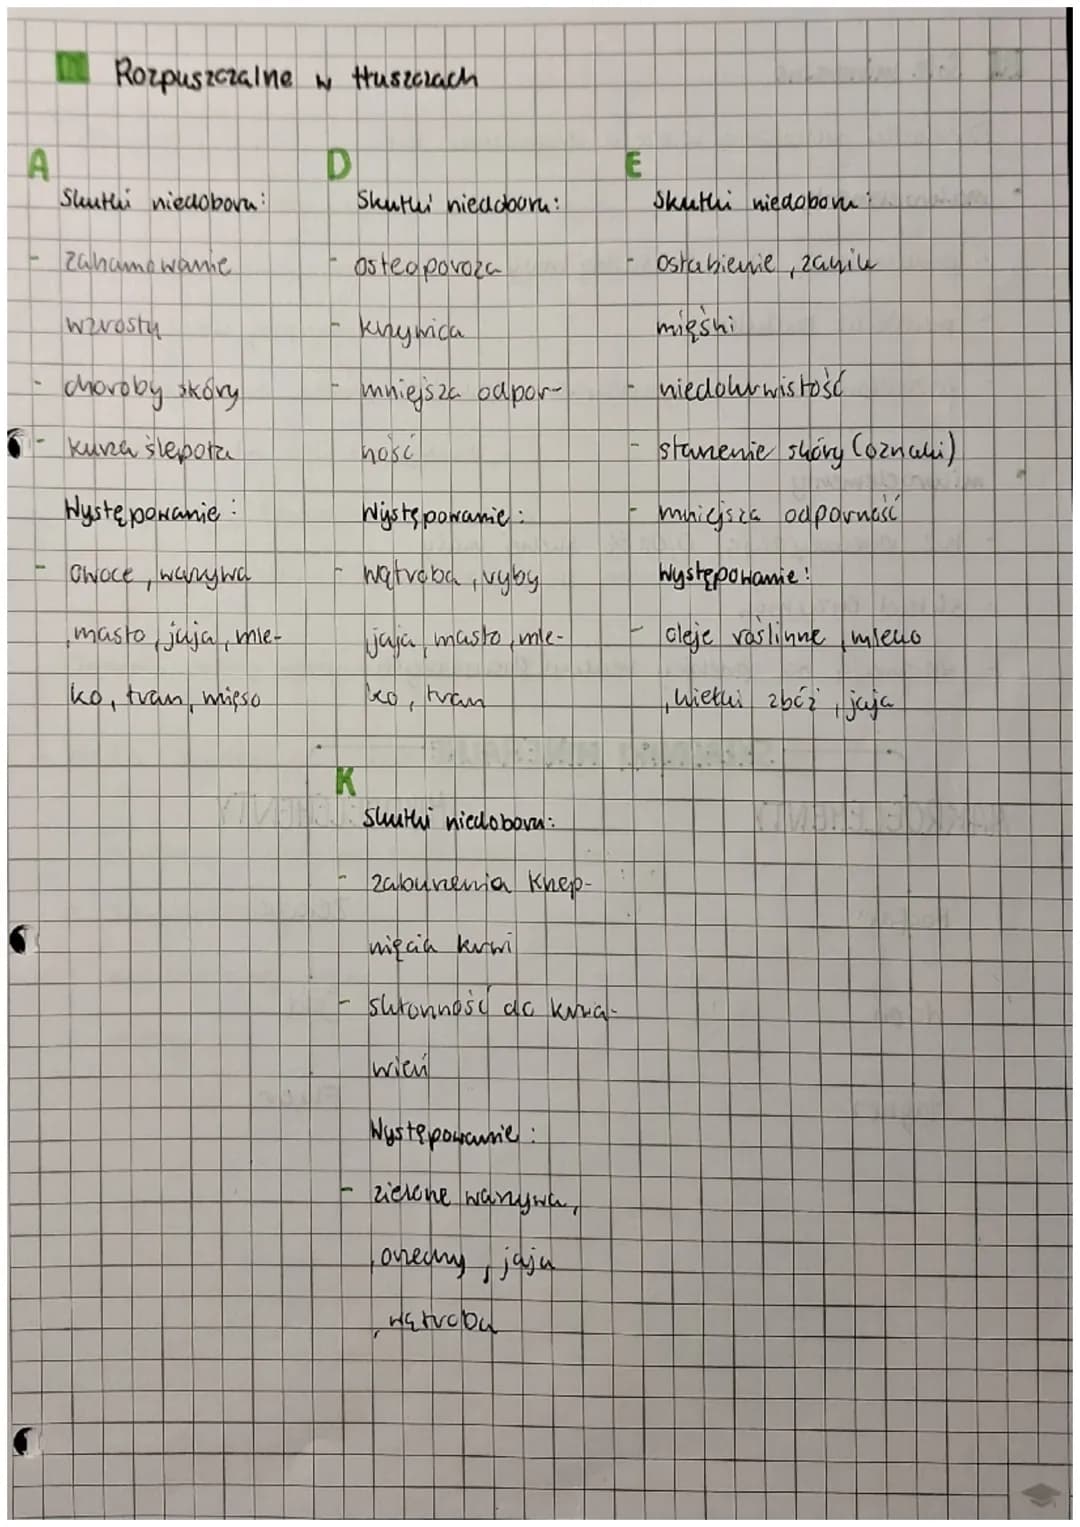 Rozpuszczalne w tłuszczach
A
Skutki niedoboru:
- zahamowanie
wzrostu
- choroby skóry
- kurza ślepota
Występowanie:
- owoce, warzywa
, masło, jaja, mle-
ko, tran, mięso
D
Skutki niedoboru:
- osteoporoza
- krzywica
- mniejsza odpor-
ność
Występowanie:
- wątroba, ryby
jaja, masło, mle-
ko, tran
E
Skutki niedoboru:
- osłabienie, zanik
mięśni
- niedokrwistość
- starzenie skóry (oznaki)
- mniejsza odporność
Występowanie:
- oleje roślinne, mleko
, kiełki zbóż, jaja
K
Skutki niedoboru:
- zaburzenia krzep-
nięcia krwi
- skłonność do krwa-
wień
Występowanie:
- zielone warzywa,
, orzechy, jaja
, wątroba